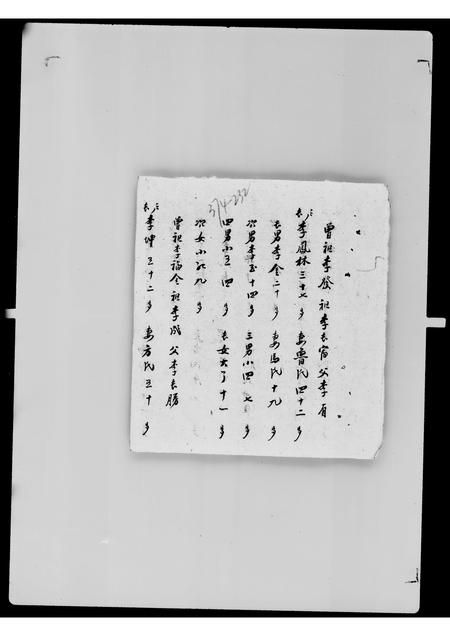 曾祖李發 祖李長富 父李有
長 李鳳林三十七歲 妻魯氏四十二歲
長男李金二十歲 妻馬氏十九歲
次男李玉十四歲 三男小四 七歲
四男小五 四歲 長女大了十一歲
次女小紅九歲
曾祖李福全 祖李成 父李長勝
長 李坤三十二歲 妻方氏三十歲
374-232